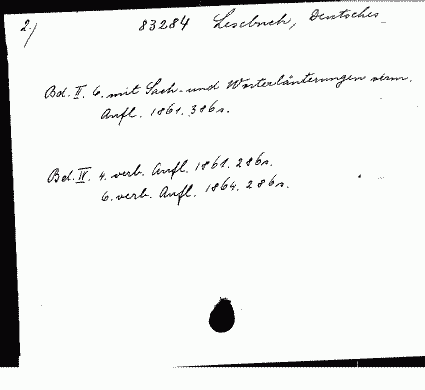 2./ 83284 Lesebuch, Deutsches
Bd. II. 6. mit Sach- und Worterläuterungen verm.
Aufl. 1861. 386s.
Bd. IV. 4. verb. Aufl. 1861. 286s.
6. verb. Aufl. 1864. 286s.